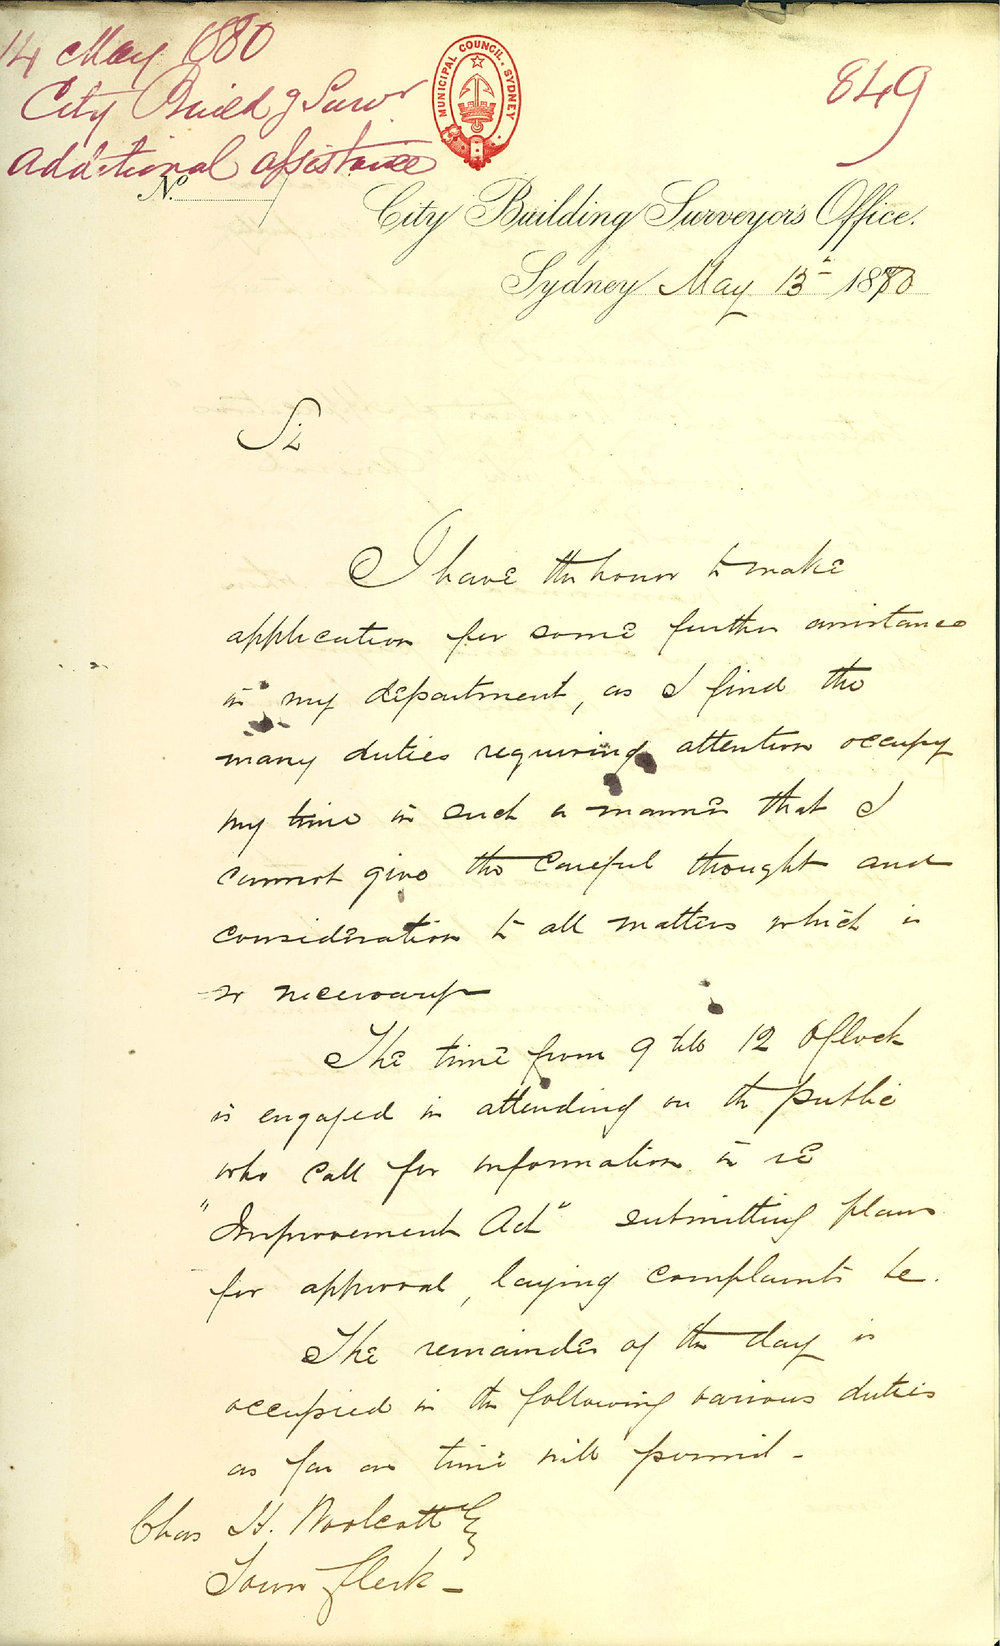 14 May 1880
City Build g Survr
Additional assistance
MUNICIPAL COUNCIL. SYDNEY
849
No.
City Building Surveyor's Office.
Sydney May 13th 1880
Sir
I have the honor to make
application for some further assistance
in my department, as I find the
many duties requiring attention occupy
my time in such a manner that I
cannot give the careful thought and
consideration to all matters which is
so necessary
The time from 9 till 12 O'Clock
is engaged in attending on the public
who call for information in re
"Improvement Act" submitting plans
for approval, laying complaints &c.
The remainder of the day is
occupied in the following various duties
as far as time will permit -
Chas H. Woolcott Esq
Town Clerk -